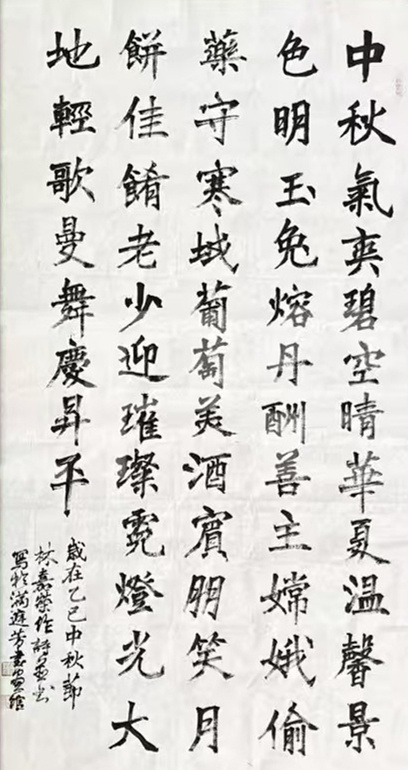 中秋氣爽碧空晴華夏溫馨景
色明玉兔熔丹酬善主嫦娥偷
藥守寒域葡萄美酒賓朋笑月
餅佳餚老少迎璀璨霓燈光大
地輕歌曼舞慶昇平
歲在乙巳中秋節
林嘉榮作詩並書
寫於滿庭芳書畫館